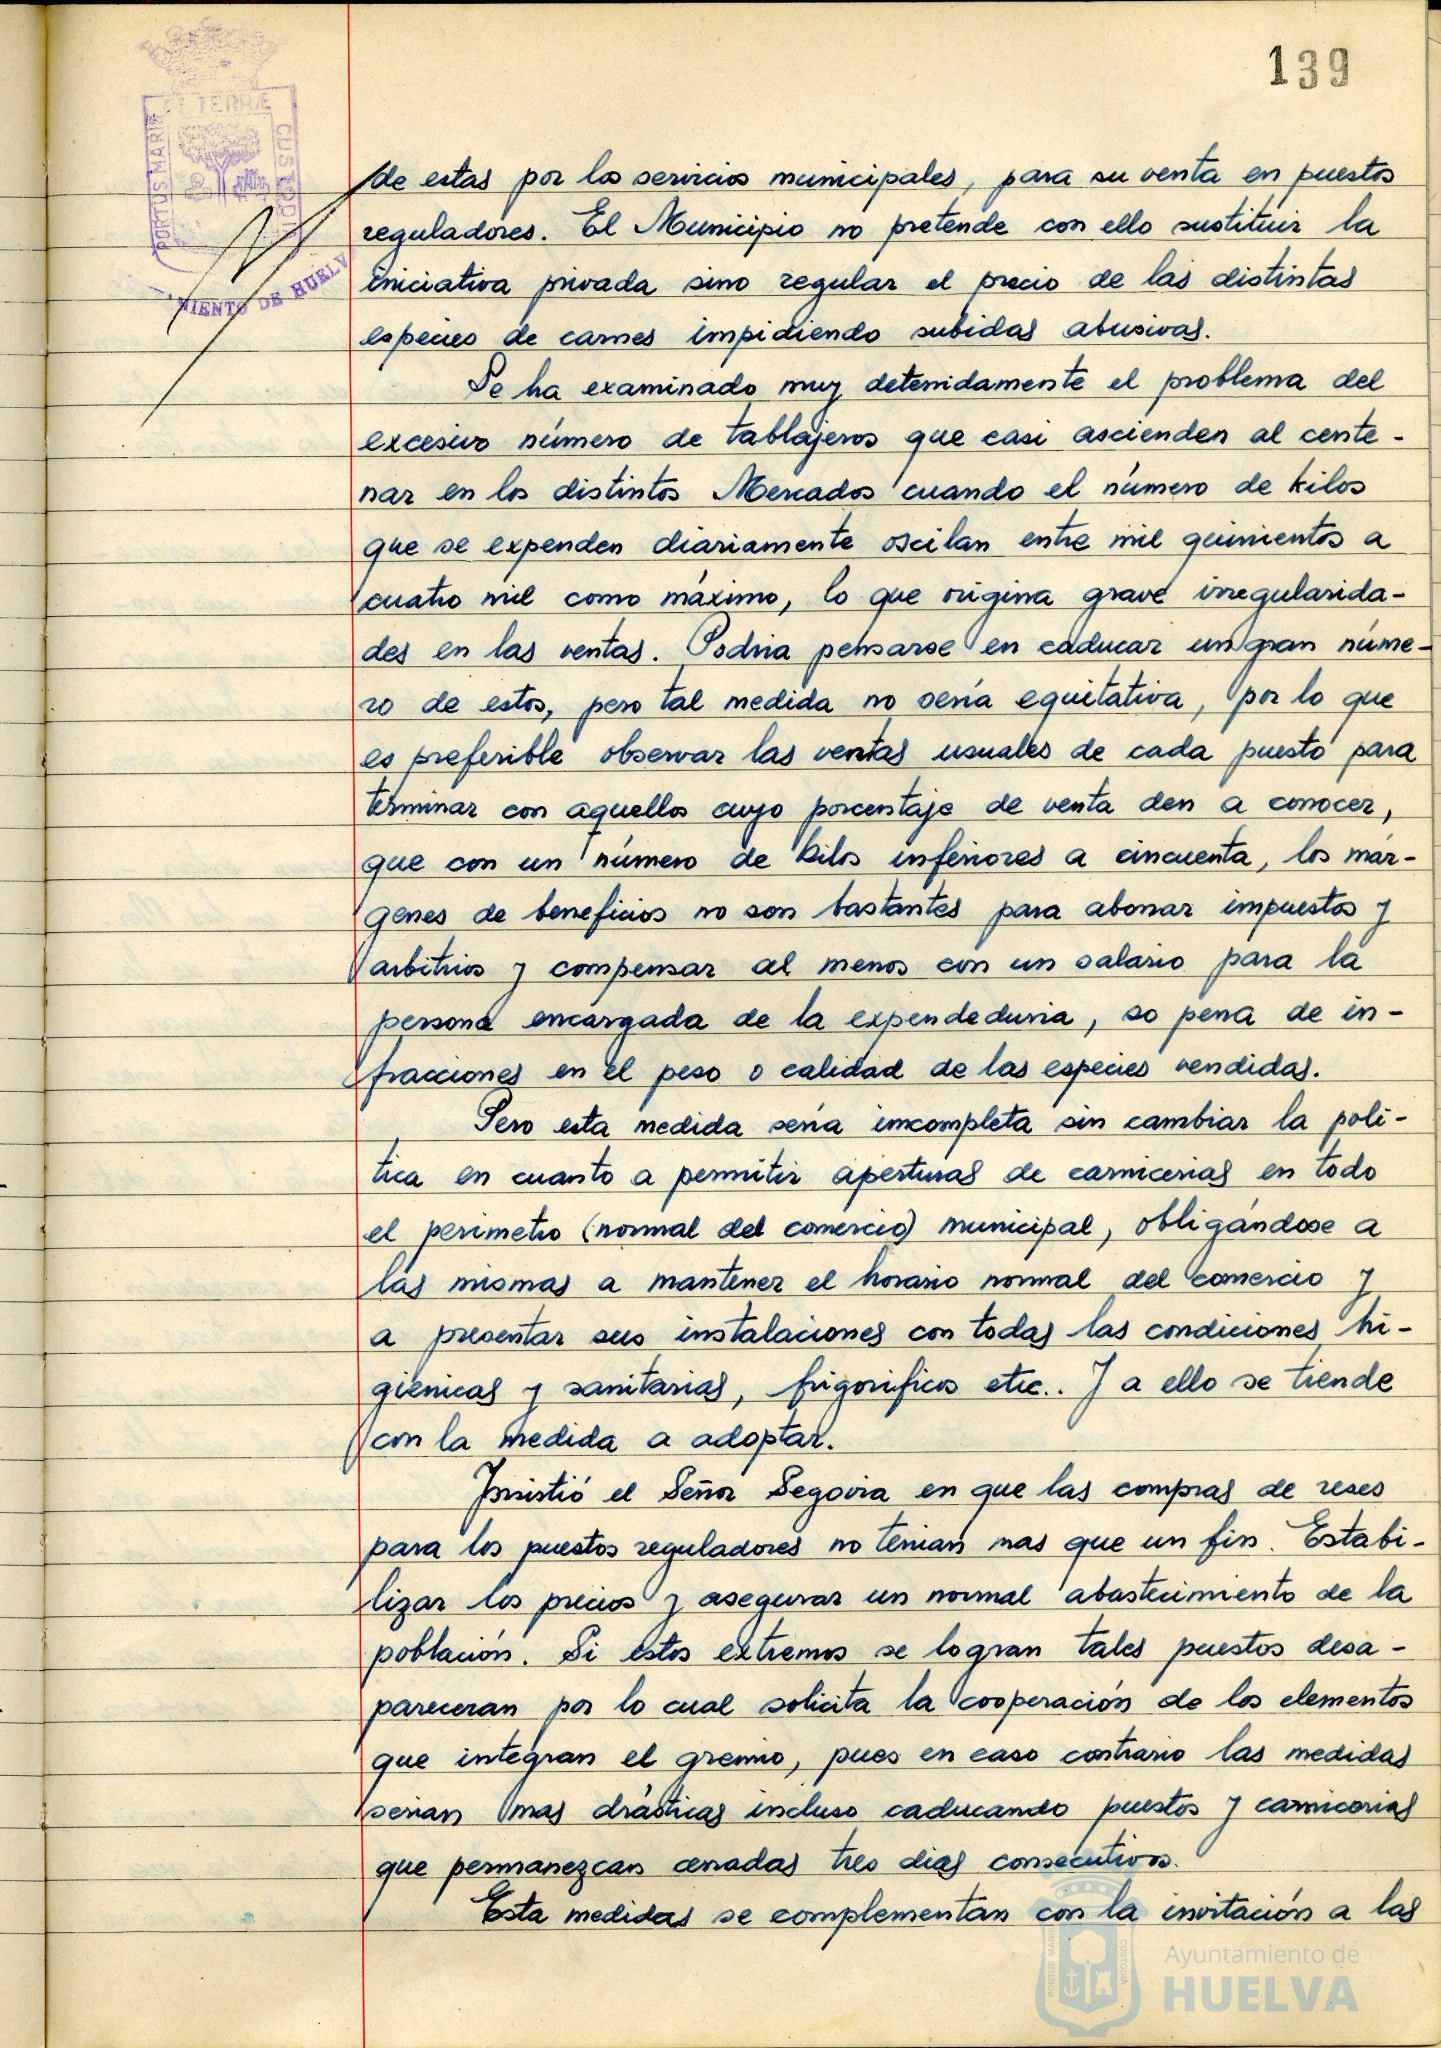 139
ET TERRÆ
PORTUS MARIS
CUSTODI
MIENTO DE HUELV
de estas por los servicios municipales, para su venta en puestos
reguladores. El Municipio no pretende con ello sustituir la
iniciativa privada sino regular el precio de las distintas
especies de carnes impidiendo subidas abusivas.
Se ha examinado muy detenidamente el problema del
excesivo número de tablajeros que casi ascienden al cente-
nar en los distintos Mercados cuando el número de kilos
que se expenden diariamente oscilan entre mil quinientos a
cuatro mil como máximo, lo que origina grave irregularida-
des en las ventas. Podria pensarse en caducar un gran núme-
ro de estos, pero tal medida no sería equitativa, por lo que
es preferible observar las ventas usuales de cada puesto para
terminar con aquellos cuyo porcentaje de venta den a conocer,
que con un número de kilos inferiores a cincuenta, los már-
genes de beneficios no son bastantes para abonar impuestos y
arbitrios y compensar al menos con un salario para la
persona encargada de la expendeduria, so pena de in-
fracciones en el peso o calidad de las especies vendidas.
Pero esta medida sería imcompleta sin cambiar la poli-
tica en cuanto a permitir aperturas de carnicerias en todo
el perimetro (normal del comercio) municipal, obligándose a
las mismas a mantener el horario normal del comercio y
a presentar sus instalaciones con todas las condiciones hi-
gienicas y sanitarias, frigorificos etc.. Y a ello se tiende
con la medida a adoptar.
Insistió el Señor Segovia en que las compras de reses
para los puestos reguladores no tenian mas que un fin. Estabi-
lizar los precios y asegurar un normal abastecimiento de la
población. Si estos extremos se logran tales puestos desa-
pareceran por lo cual solicita la cooperación de los elementos
que integran el gremio, pues en caso contrario las medidas
serian mas drásticas incluso caducando puestos y carnicerias
que permanezcan cerradas tres dias consecutivos.
Esta medidas se complementan con la invitación a las
PORTUS MARIS
CUSTODIA
Ayuntamiento de
HUELVA